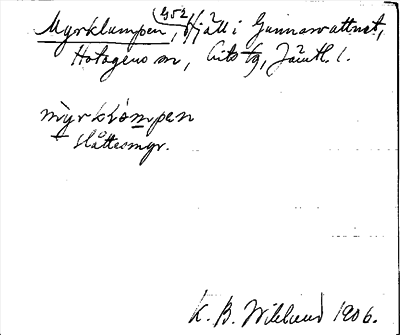 Myrklumpen, fjäll i Gunnarvattnet,
Hotagens sn, Lits tg, Jämtl. l.
mỳrklòmpen
slåttesmyr.
K. B. Wiklund 1906.